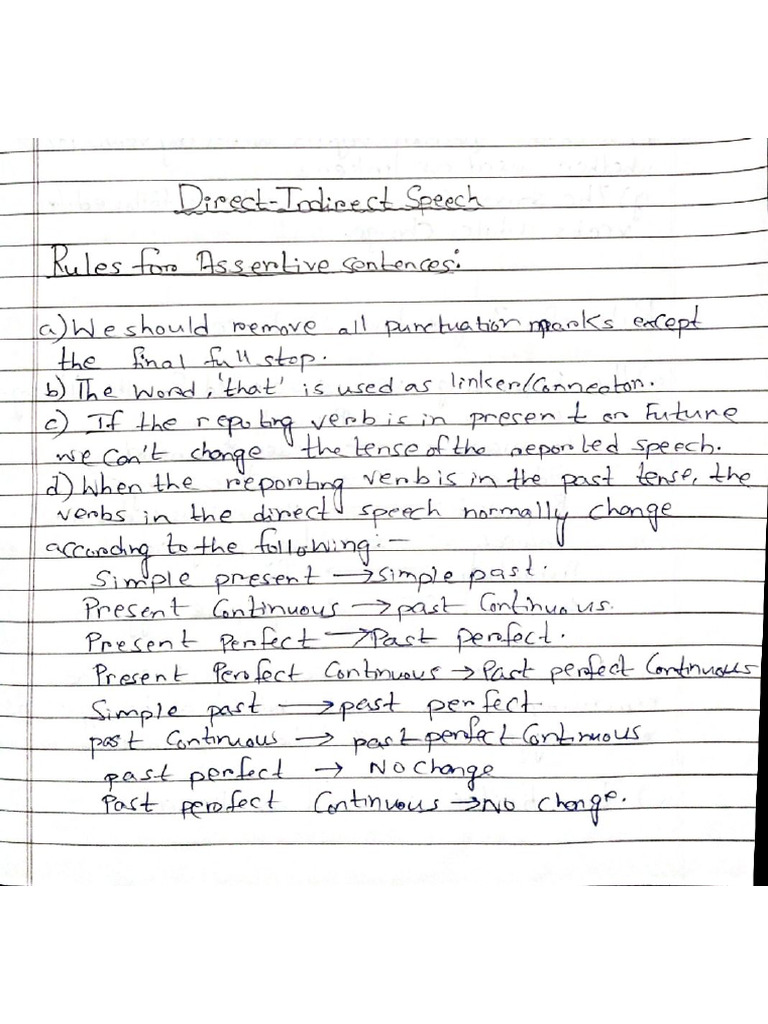 Direct-Indirect Speech
Rules for Assertive sentences:
a) We should remove all punctuation marks except
the final full stop.
b) The word, 'that' is used as linker/connector.
c) If the reputing verb is in present or Future
we can't change the tense of the reported speech.
d) When the reporting verb is in the past tense, the
verbs in the direct speech normally change
according to the following:-
Simple present → simple past.
Present Continuous → past Continuous.
Present Perfect → Past perfect.
Present Perfect Continuous → Past perfect Continuous
Simple past → past perfect
past Continuous → past perfect Continuous
past perfect → No change
Past perfect Continuous → No change.